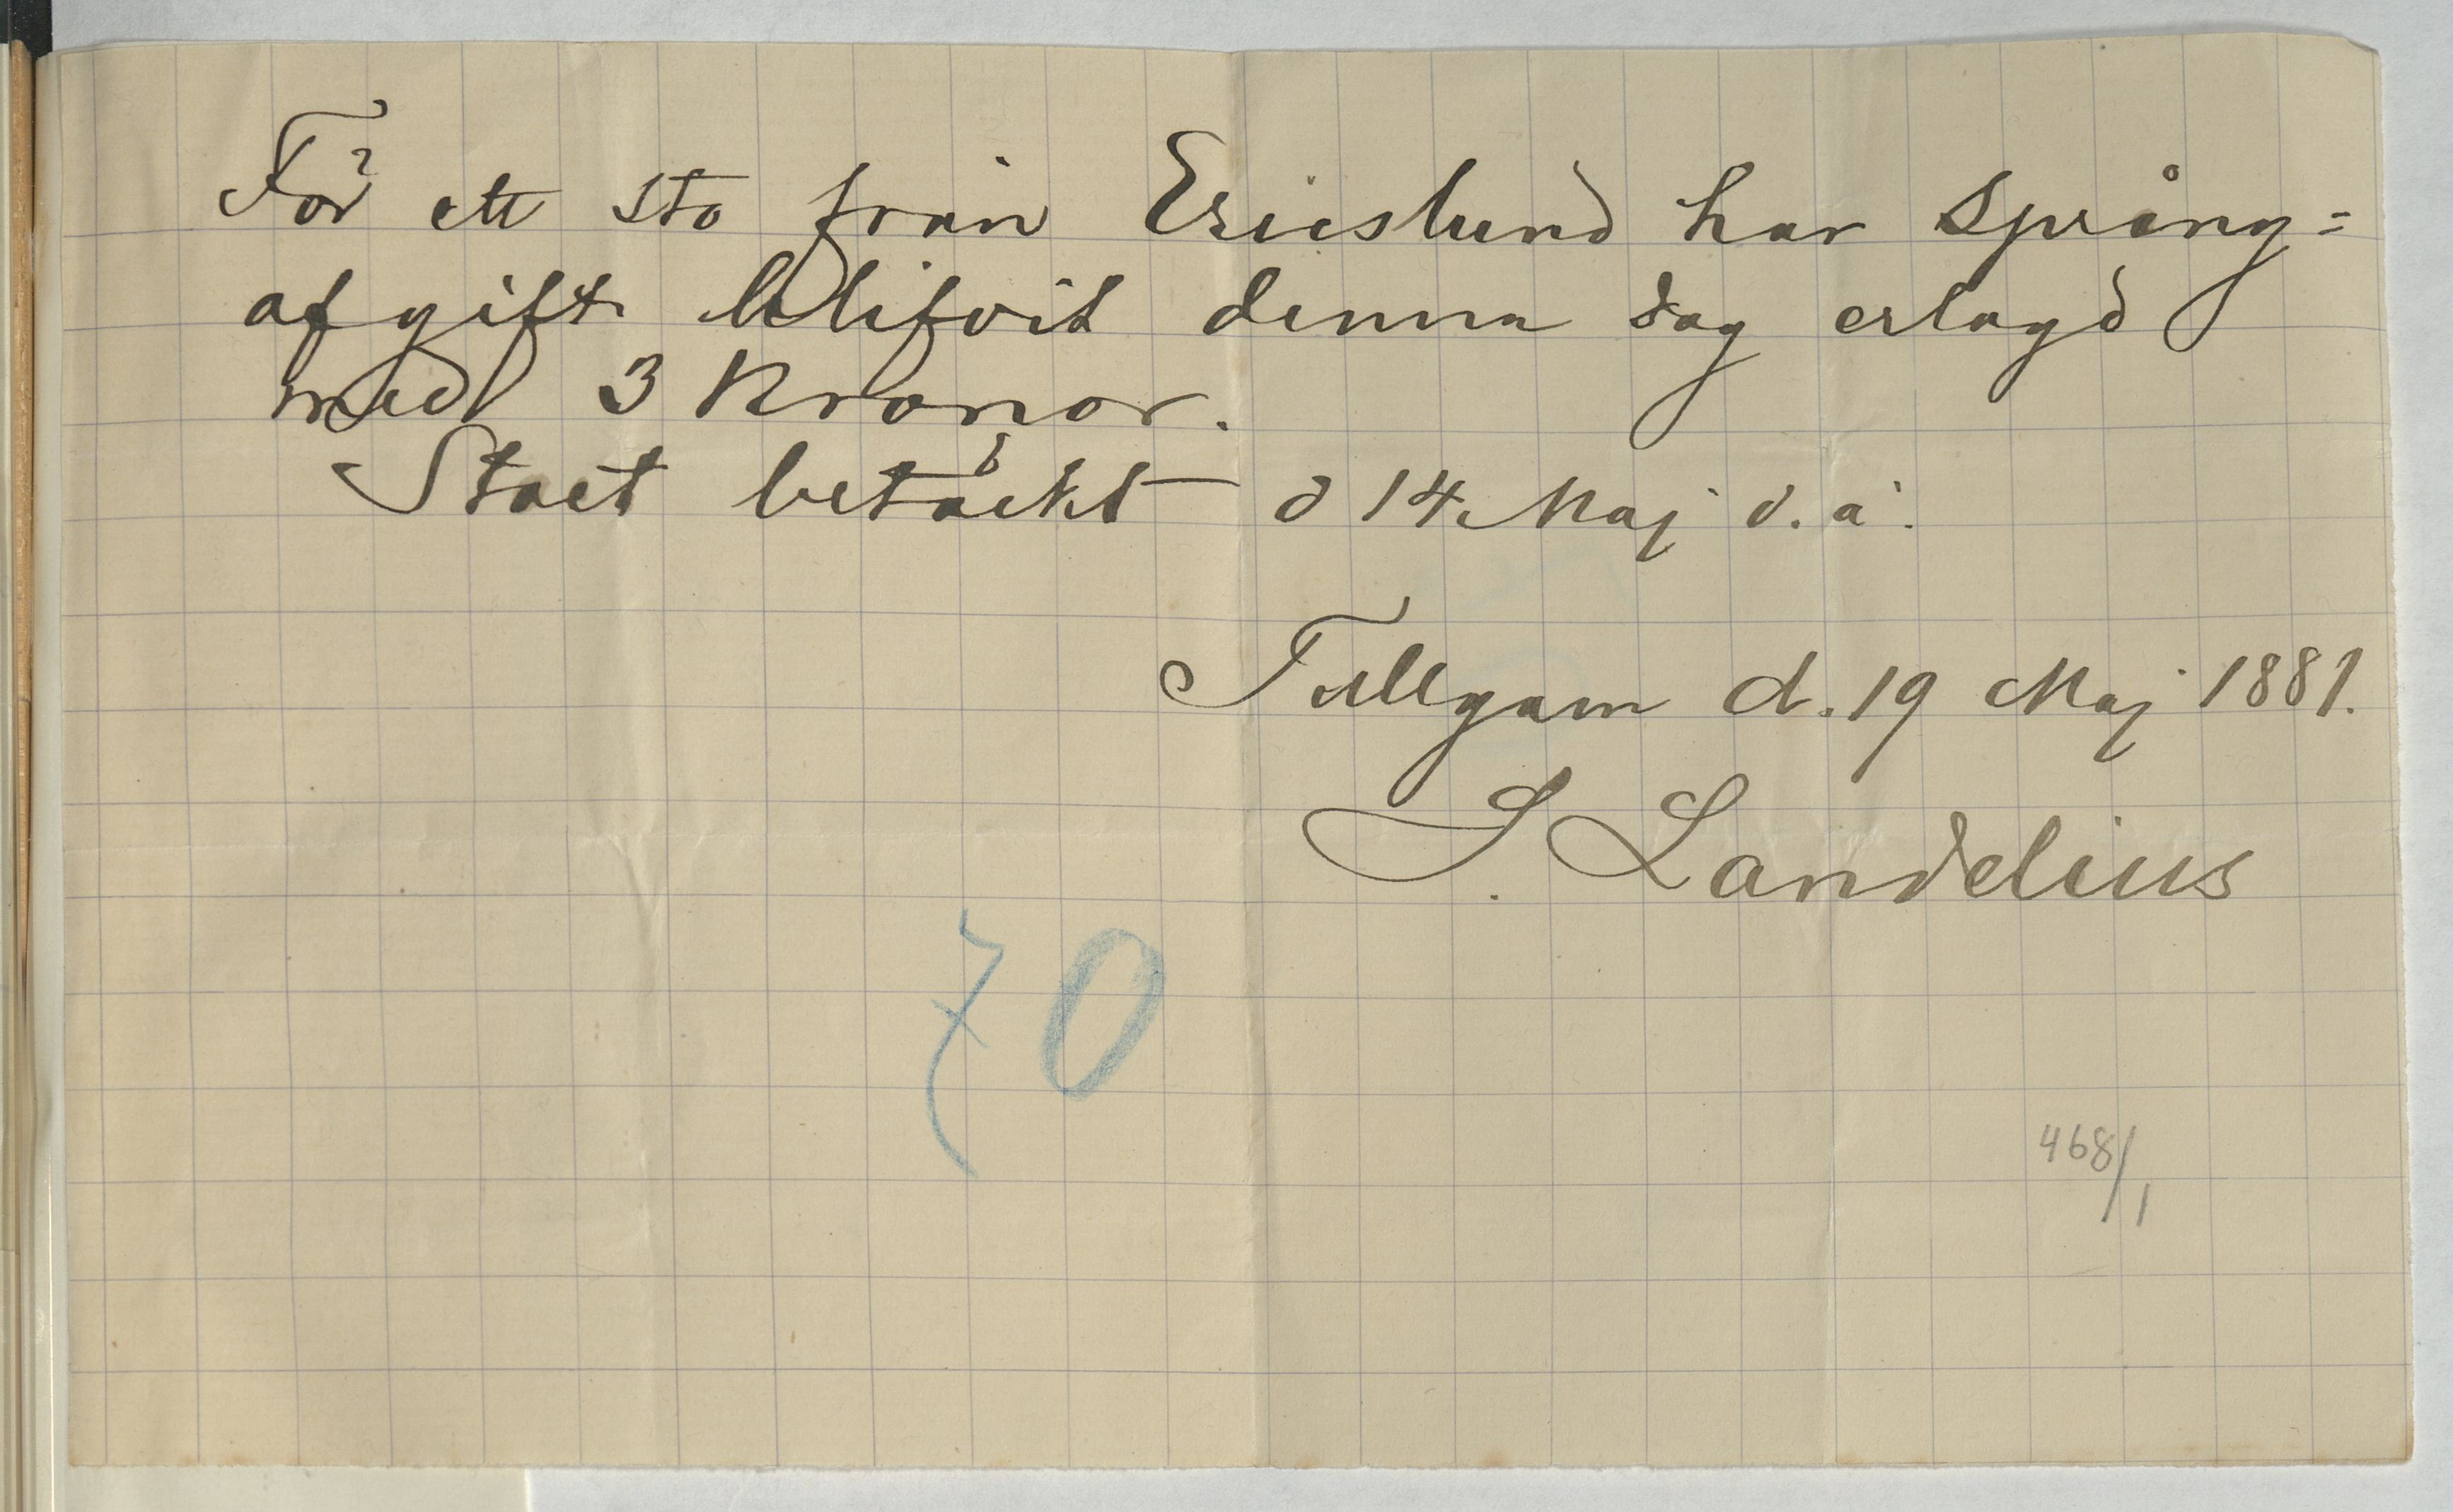 För ett sto från Ericslund har språng=
afgift blifvit denna dag erlagd
med 3 Kronor.
Stoet betäckt d 14 Maj d. å.
Tullgarn d. 19 Maj 1881.
S. Landelius
70
468/1